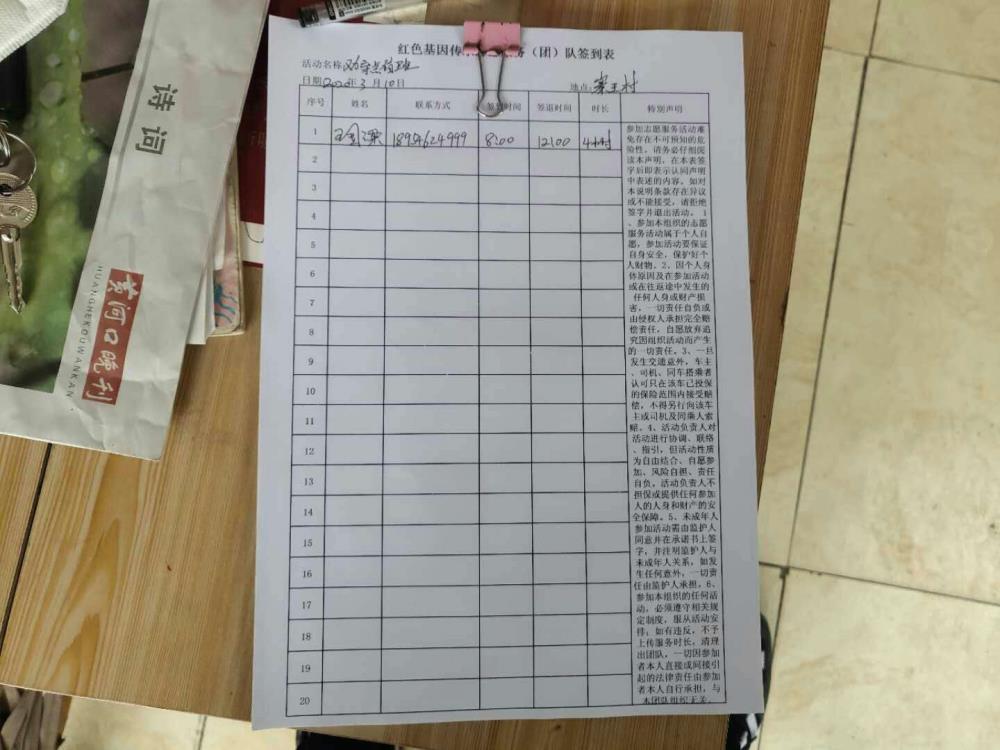 红色基因传 务（团）队签到表
活动名称
日期2020年3月10日
地点:
序号 姓名 联系方式 签到时间 签退时间 时长 特别声明
1 8:00 12:00 4小时
2
3
4
5
6
7
8
9
10
11
12
13
14
15
16
17
18
19
20
参加志愿服务活动难
免存在不可预知的危
险性，请务必仔细阅
读本声明，在本表签
字后即表示认同声明
中表述的内容。如对
本说明条款存在异议
或不能接受，请拒绝
签字并退出活动。1
、参加本组织的志愿
服务活动属于个人自
愿，参加活动要保证
自身安全，保护好个
人财物。2、因个人身
体原因及在参加活动
或在往返途中发生的
任何人身或财产损
害，一切责任自负或
由侵权人承担完全赔
偿责任，自愿放弃追
究因组织活动而产生
的一切责任。3、一旦
发生交通意外，车主
、司机、同车搭乘者
认可只在该车已投保
的保险范围内接受赔
偿，不得另行向该车
主或司机及同乘人索
赔。4、活动负责人对
活动进行协调、联络
、指引，但活动性质
为自由结合、自愿参
加、风险自担、责任
自负。活动负责人不
担保或提供任何参加
人的人身和财产的安
全保障。5、未成年人
参加活动需由监护人
同意并在承诺书上签
字，并注明监护人与
未成年人关系，如发
生任何意外，一切责
任由监护人承担。6、
参加本组织的任何活
动，必须遵守相关规
定制度，服从活动安
排；如有违反，不予
上传服务时长，清理
出团队。一切因参加
者本人直接或间接引
起的法律责任由参加
者本人自行承担，与
本团队组织无关。
诗词
黄河口晚刊
HUANGHEKOUWANKAN